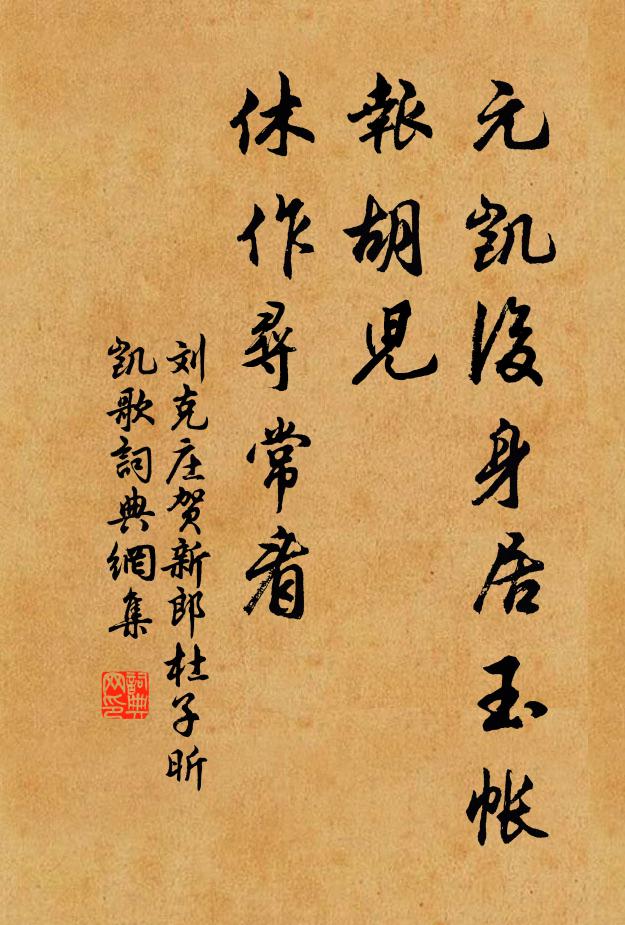 元凱後身居玉帳
報胡兒
休作尋常看
刘克庄贺新郎杜子昕
凱歌詞典網集
詞典
网印